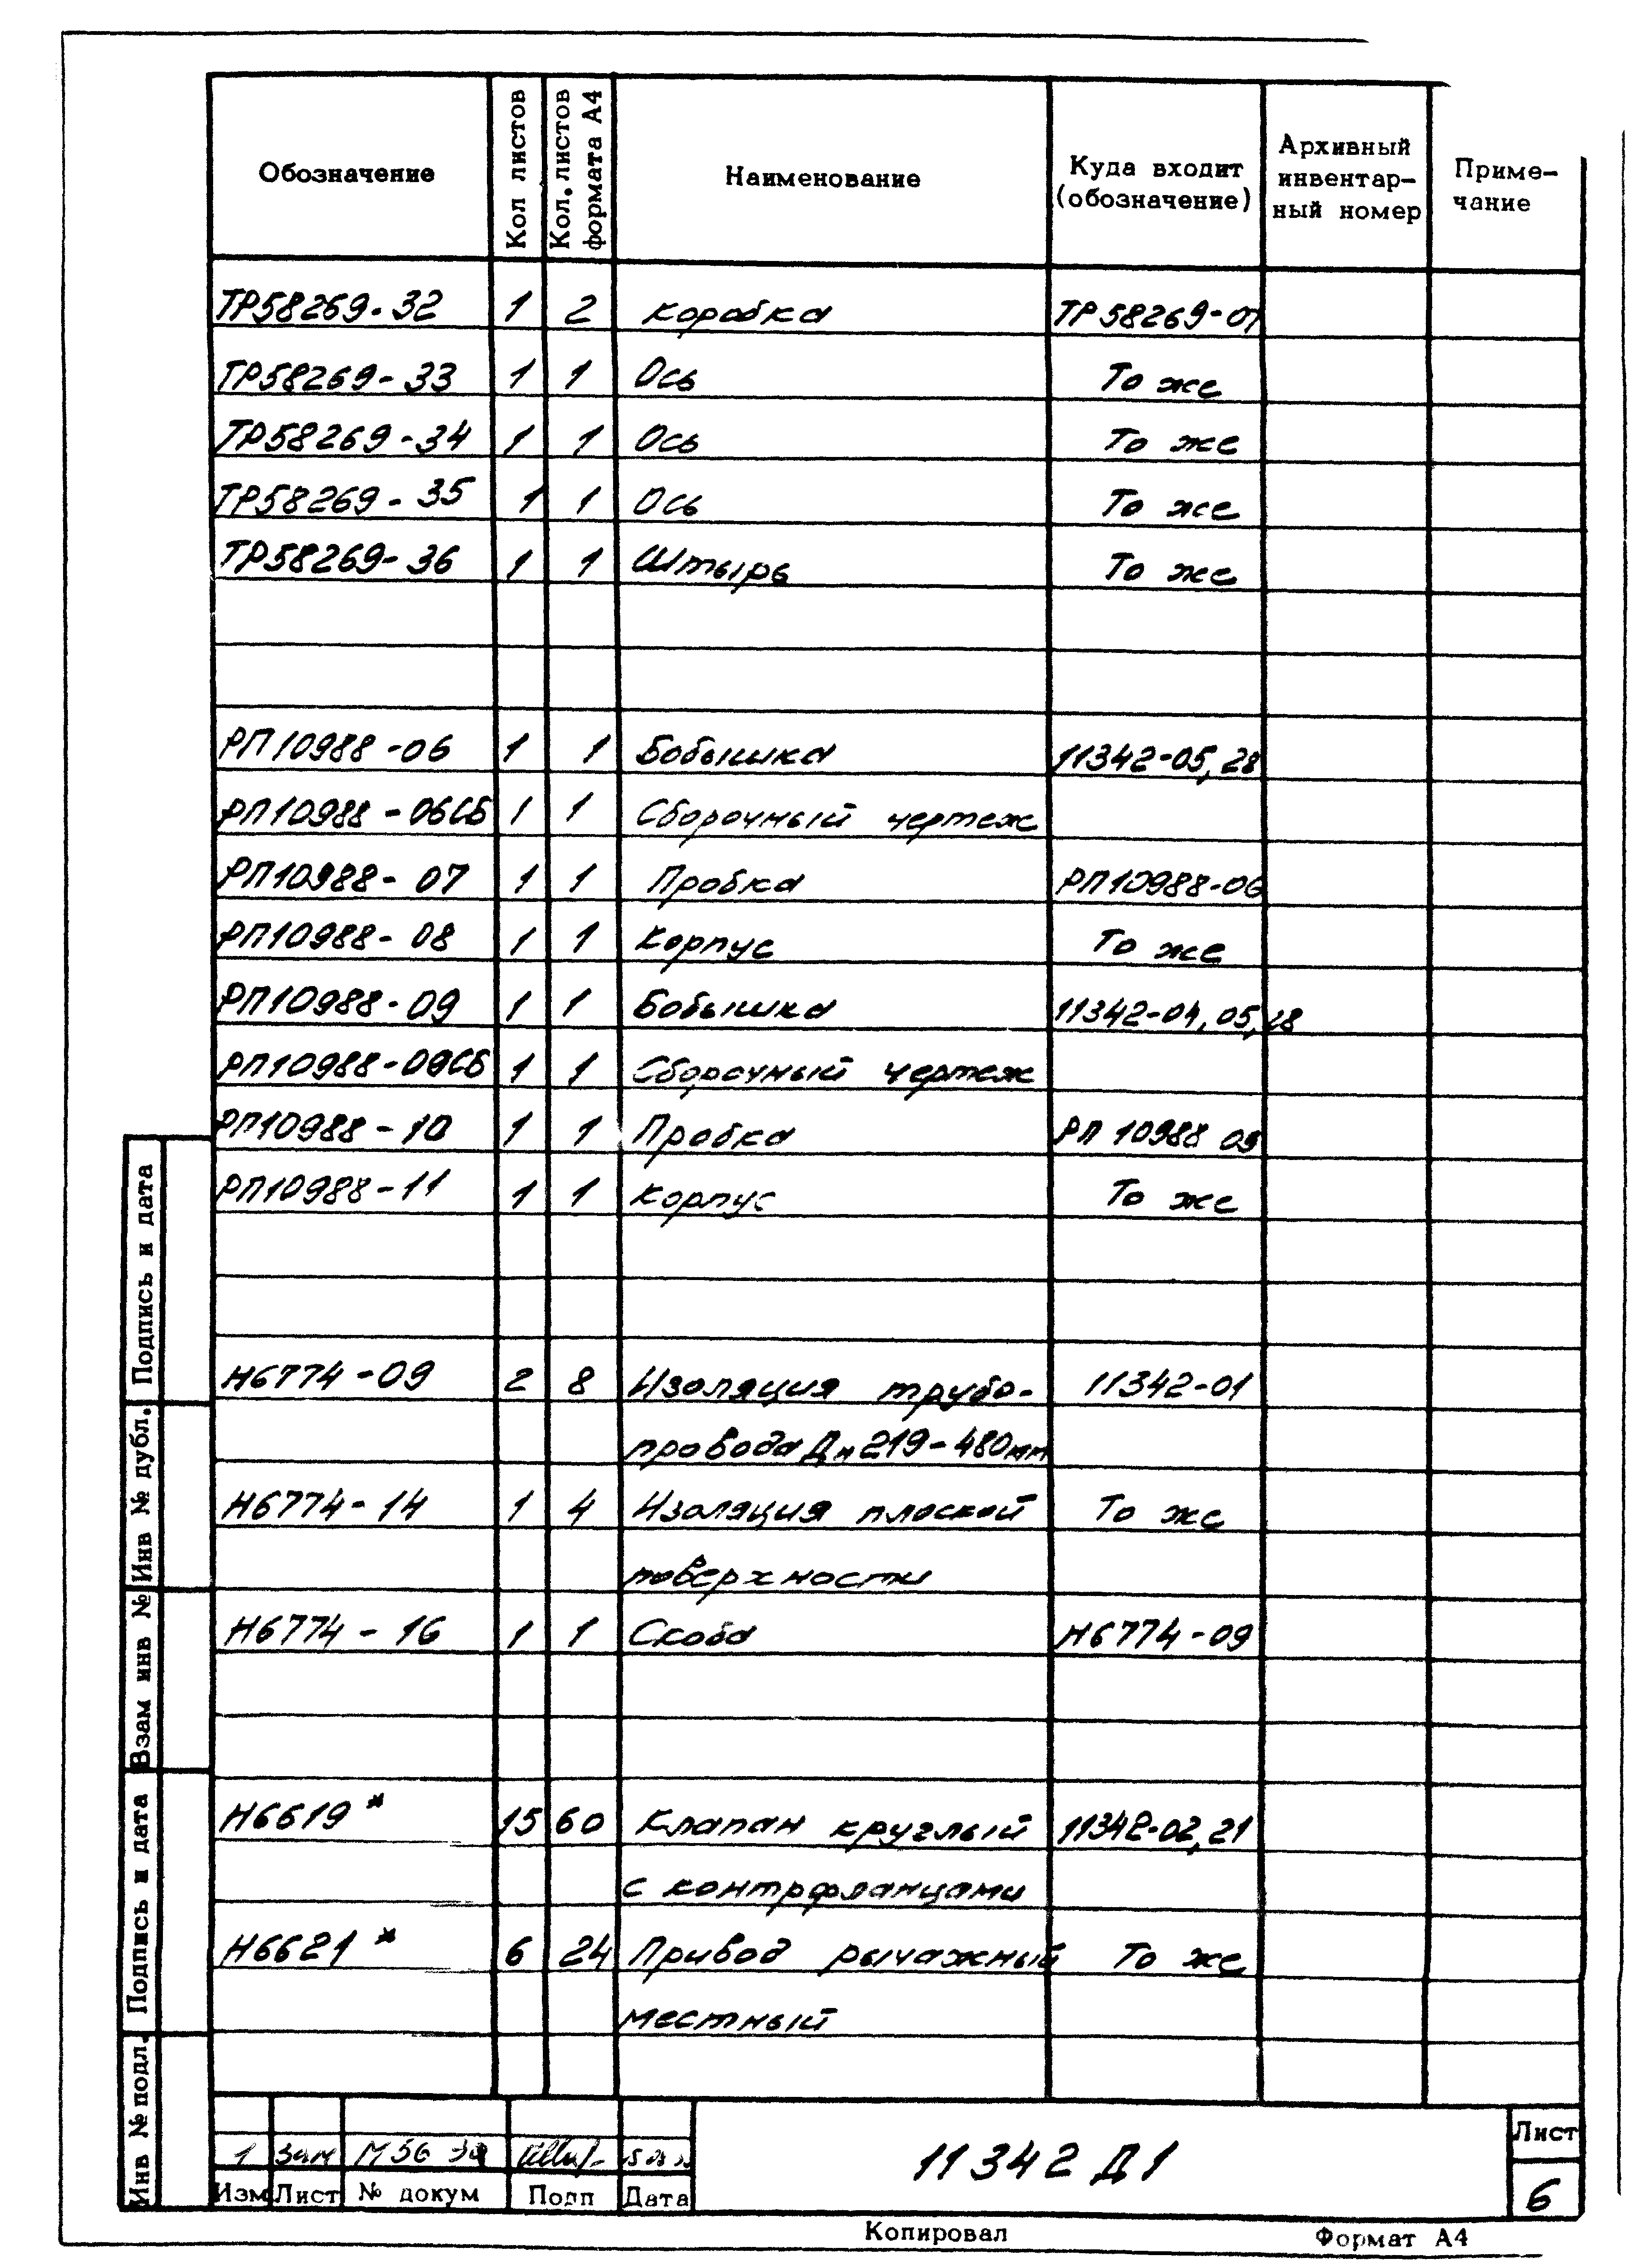 Обозначение Кол листов Кол. листов формата А4 Наименование Куда входит (обозначение) Архивный инвентар-ный номер Приме-чание
ТР58269-32 1 2 Коробка ТР58269-01
ТР58269-33 1 1 Ось То же
ТР58269-34 1 1 Ось То же
ТР58269-35 1 1 Ось То же
ТР58269-36 1 1 Штырь То же
РП10988-06 1 1 Бобышка 11342-05, 28
РП10988-06СБ 1 1 Сборочный чертеж
РП10988-07 1 1 Пробка РП10988-06
РП10988-08 1 1 Корпус То же
РП10988-09 1 1 Бобышка 11342-04, 05, 28
РП10988-09СБ 1 1 Сборочный чертеж
РП10988-10 1 1 Пробка РП 10988 09
РП10988-11 1 1 Корпус То же
Н6774-09 2 8 Изоляция трубо- 11342-01
провода Дн 219-480мм
Н6774-14 1 4 Изоляция плоской То же
поверхности
Н6774-16 1 1 Скоба Н6774-09
Н6619* 15 60 Клапан круглый 11342-02, 21
с контрфланцами
Н6621* 6 24 Привод рычажный То же
местный
Подпись и дата
Инв № дубл.
Взам инв №
Подпись и дата
Инв № подл.
1 Зам М56
Изм Лист № докум Подп Дата
11342 Д1
Лист
6
Копировал Формат А4